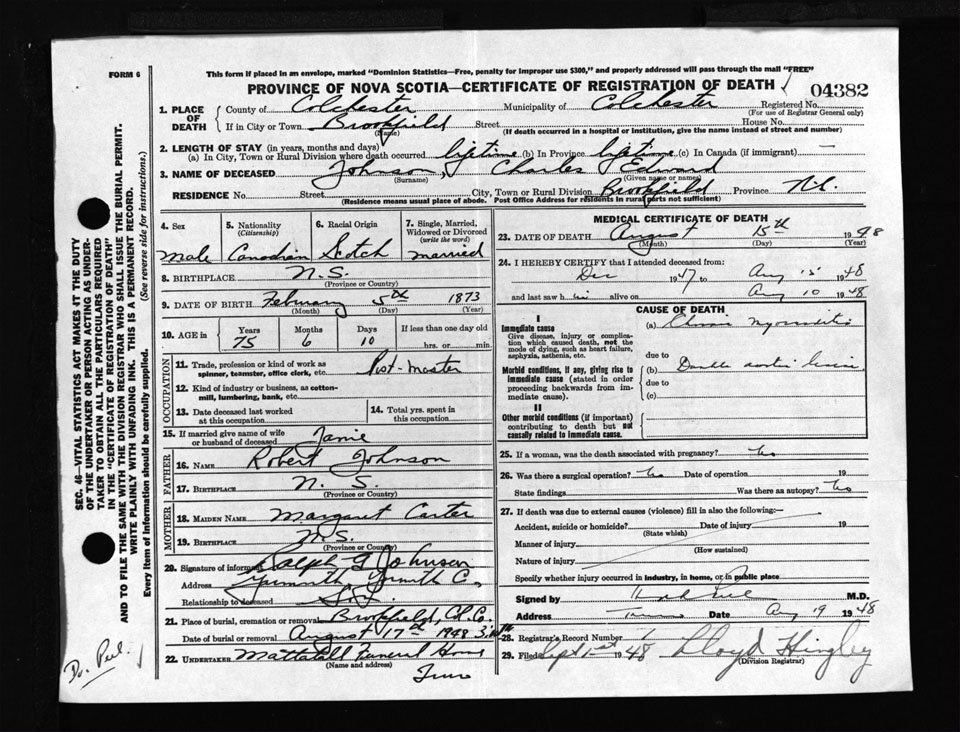 FORM 6
This form if placed in an envelope, marked "Dominion Statistics—Free, penalty for improper use $300," and properly addressed will pass through the mail "FREE"
PROVINCE OF NOVA SCOTIA—CERTIFICATE OF REGISTRATION OF DEATH
04382
1. PLACE OF DEATH
County of Colchester Municipality of Colchester Registered No.
(For use of Registrar General only)
If in City or Town Brookfield Street House No.
(Name) (If death occurred in a hospital or institution, give the name instead of street and number)
2. LENGTH OF STAY (in years, months and days)
(a) In City, Town or Rural Division where death occurred lifetime (b) In Province lifetime (c) In Canada (if immigrant) —
3. NAME OF DECEASED Johnson, Charles Edward
(Surname) (Given name or names)
RESIDENCE No. Street City, Town or Rural Division Brookfield Province N.S.
(Residence means usual place of abode. Post Office Address for residents in rural parts not sufficient)
4. Sex
Male
5. Nationality
(Citizenship)
Canadian
6. Racial Origin
Scotch
7. Single, Married, Widowed or Divorced
(write the word)
married
8. BIRTHPLACE N.S.
(Province or Country)
9. DATE OF BIRTH February 5th 1873
(Month) (Day) (Year)
10. AGE in Years Months Days If less than one day old
75 6 10 hrs. or min.
OCCUPATION
11. Trade, profession or kind of work as spinner, teamster, office clerk, etc. Post-Master
12. Kind of industry or business, as cotton-mill, lumbering, bank, etc.
13. Date deceased last worked at this occupation
14. Total yrs. spent in this occupation
15. If married give name of wife or husband of deceased Janie
FATHER
16. NAME Robert Johnson
17. BIRTHPLACE N.S.
(Province or Country)
MOTHER
18. MAIDEN NAME Margaret Carter
19. BIRTHPLACE N.S.
(Province or Country)
20. Signature of informant Ralph G Johnson
Address Yarmouth Yarmouth Co.
Relationship to deceased Son
21. Place of burial, cremation or removal Brookfield, Col. Co.
Date of burial or removal August 17th 1948
22. UNDERTAKER Mattatall Funeral Home
(Name and address)
Truro
MEDICAL CERTIFICATE OF DEATH
23. DATE OF DEATH August 15th 1948
(Month) (Day) (Year)
24. I HEREBY CERTIFY that I attended deceased from:
Dec 1947 to Aug 15 1948
and last saw him alive on Aug 10 1948
CAUSE OF DEATH
I
Immediate cause
Give disease, injury or complication which caused death, not the mode of dying, such as heart failure, asphyxia, asthenia, etc.
(a) Chronic myocarditis
due to
Morbid conditions, if any, giving rise to immediate cause (stated in order proceeding backwards from immediate cause).
(b) Double aortic
due to
(c)
II
Other morbid conditions (if important) contributing to death but not causally related to immediate cause.
25. If a woman, was the death associated with pregnancy? No
26. Was there a surgical operation? No Date of operation 19
State findings Was there an autopsy? No
27. If death was due to external causes (violence) fill in also the following:
Accident, suicide or homicide? Date of injury 19
(State which)
Manner of injury
(How sustained)
Nature of injury
Specify whether injury occurred in industry, in home, or in public place
Signed by M.D.
Address Truro Date Aug 19 1948
28. Registrar's Record Number
29. Filed Sept 1st 1948 Lloyd Hingley
(Division Registrar)
SEC. 46—VITAL STATISTICS ACT MAKES IT THE DUTY
OF THE UNDERTAKER OR PERSON ACTING AS UNDER-
TAKER TO OBTAIN ALL THE PARTICULARS REQUIRED
IN THE "CERTIFICATE OF REGISTRATION OF DEATH"
AND TO FILE THE SAME WITH THE DIVISION REGISTRAR WHO SHALL ISSUE THE BURIAL PERMIT.
WRITE PLAINLY WITH UNFADING INK. THIS IS A PERMANENT RECORD.
Every item of Information should be carefully supplied. (See reverse side for instructions.)
Dr. Peel.